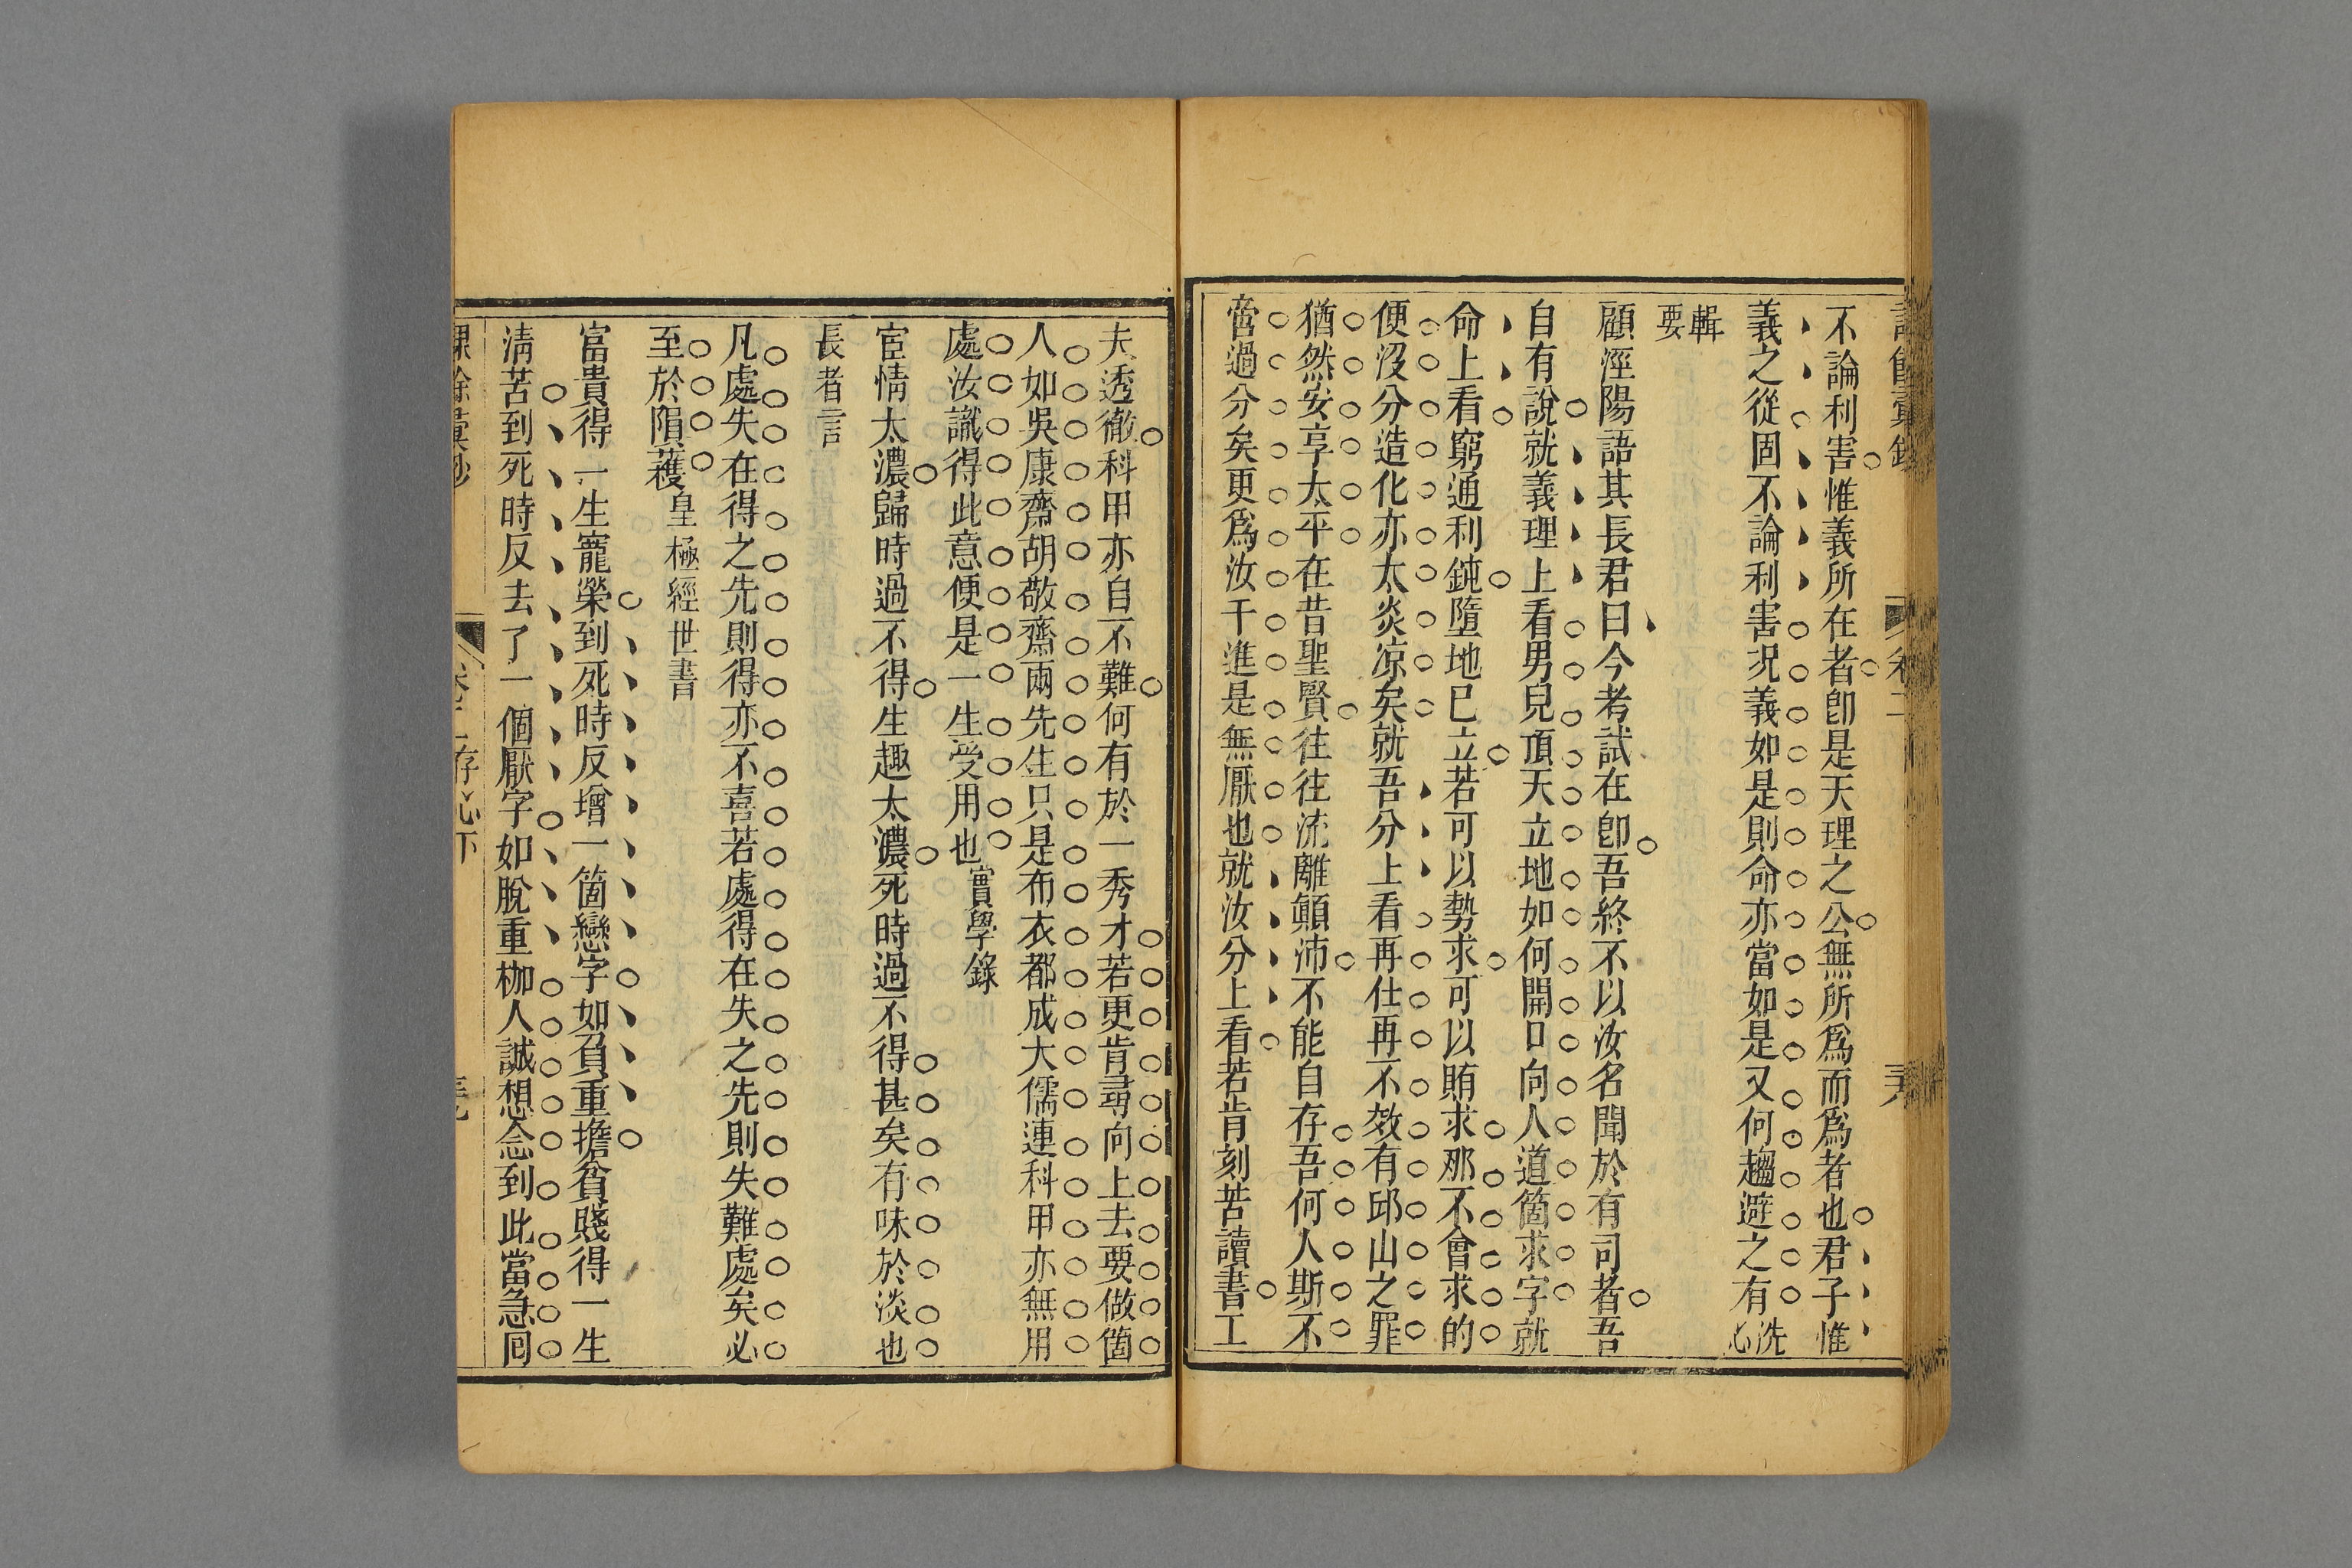 不論利害惟義所在者卽是天理之公無所爲而爲者也君子惟
義之從固不論利害況義如是則命亦當如是又何趨避之有洗心
輯要
顧涇陽語其長君曰今考試在卽吾終不以汝名聞於有司者吾
自有說就義理上看男兒頂天立地如何開口向人道箇求字就
命上看窮通利鈍墮地已立若可以勢求可以賄求那不會求的
便沒分造化亦太炎凉矣就吾分上看再仕再不效有邱山之罪
猶然安享太平在昔聖賢往往流離顛沛不能自存吾何人斯不
啻過分矣更爲汝干進是無厭也就汝分上看若肯刻苦讀書工
夫透徹科甲亦自不難何有於一秀才若更肯尋向上去要做箇
人如吳康齋胡敬齋兩先生只是布衣都成大儒連科甲亦無用
處汝識得此意便是一生受用也實學錄
宦情太濃歸時過不得生趣太濃死時過不得甚矣有味於淡也
長者言
凡處失在得之先則得亦不喜若處得在失之先則失難處矣必
至於隕穫皇極經世書
富貴得一生寵榮到死時反增一箇戀字如負重擔貧賤得一生
清苦到死時反去了一個厭字如脫重枷人誠想念到此當急囘
存心下